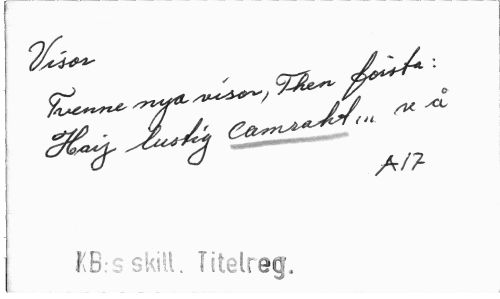 Visor
Tvenne nya visor, Then första:
Haij lustig Camraht... v å
A17
KB:s skill. Titelreg.